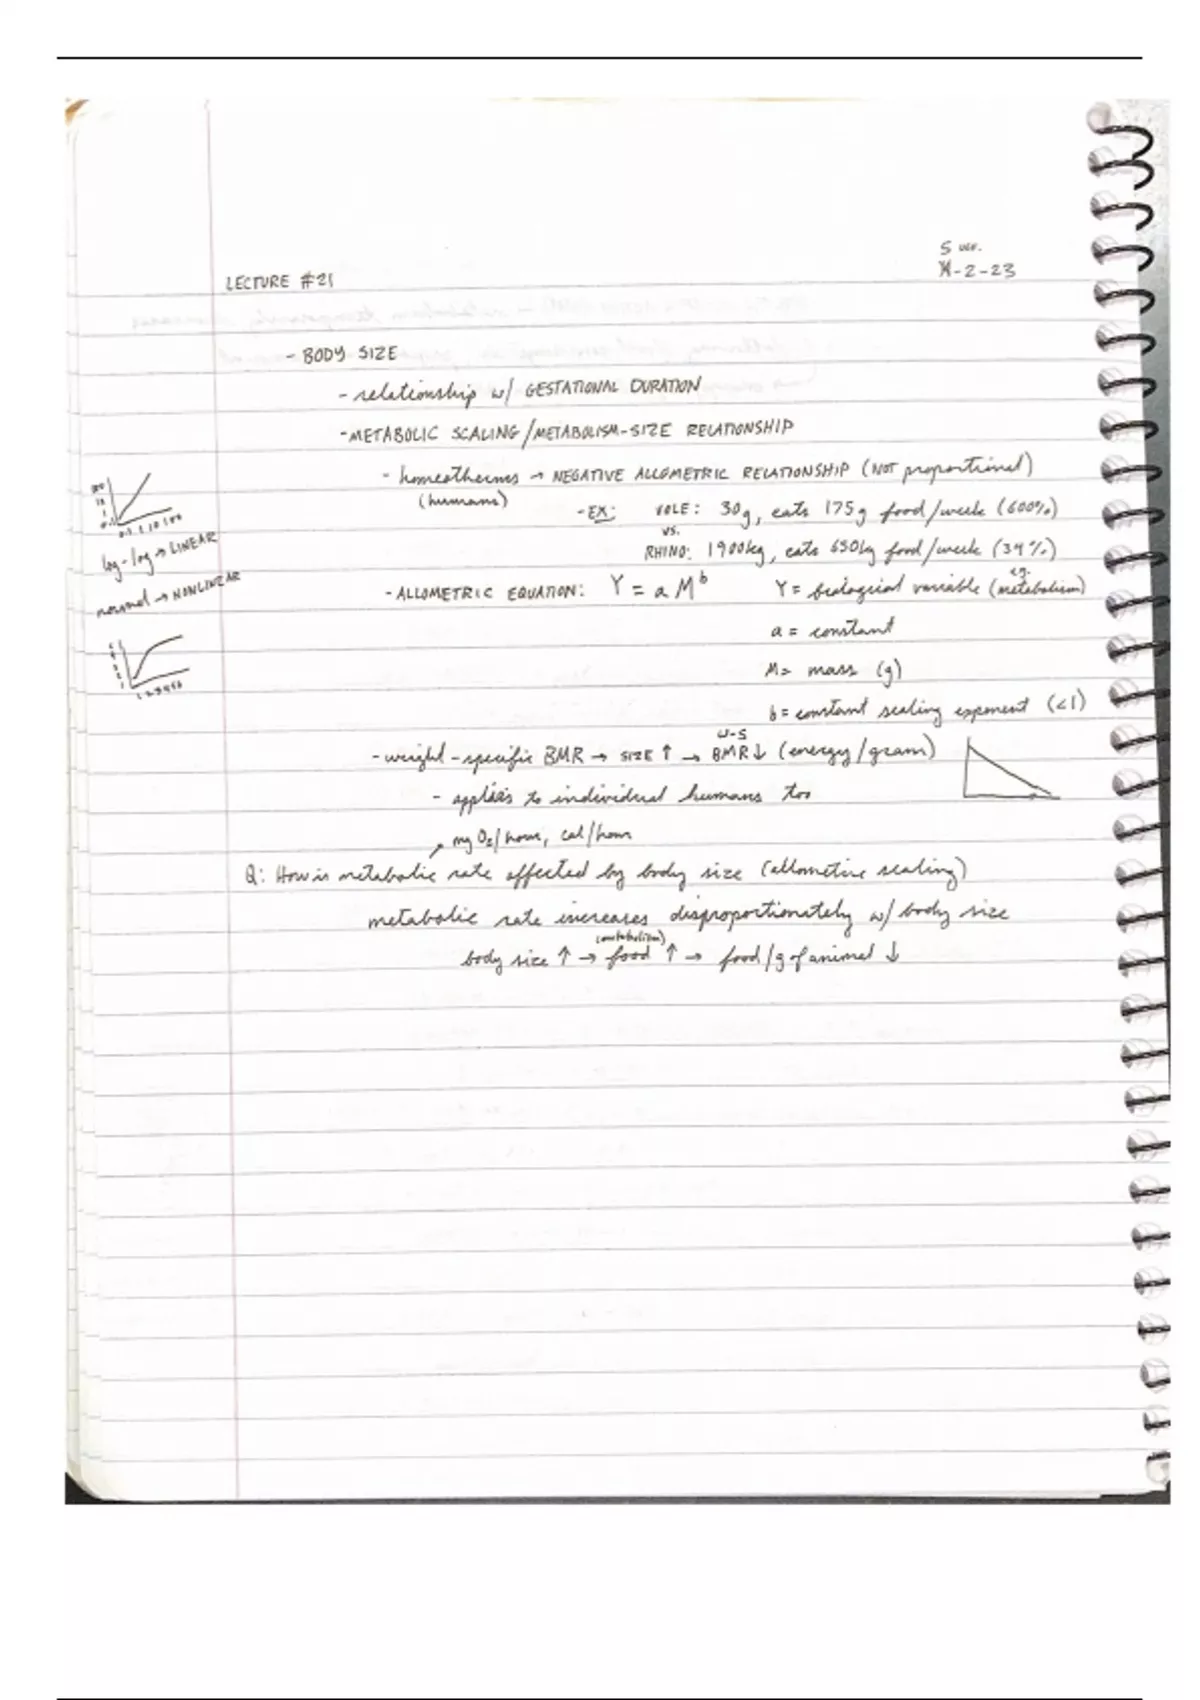 LECTURE #21
-2-23
- BODY SIZE
- relationship w/ GESTATIONAL DURATION
- METABOLIC SCALING/METABOLISM-SIZE RELATIONSHIP
- homeotherms → NEGATIVE ALLOMETRIC RELATIONSHIP (NOT proportional)
(humans)
- EX: VOLE: 30g, eats 175g food/week (600%)
vs.
RHINO: 1900kg, eats 650kg food/week (34%)
log-log → LINEAR
normal → NONLINEAR
- ALLOMETRIC EQUATION: Y = a M^b
Y = biological variable (e.g. metabolism)
a = constant
M = mass (g)
b = constant scaling exponent (<1)
- weight-specific BMR → SIZE ↑ → W-S BMR ↓ (energy/gram)
- applies to individual humans too
mg O₂/hour, cal/hour
Q: How is metabolic rate affected by body size (allometric scaling)
metabolic rate increases disproportionately w/ body size
(metabolism)
body size ↑ → food ↑ → food/g of animal ↓